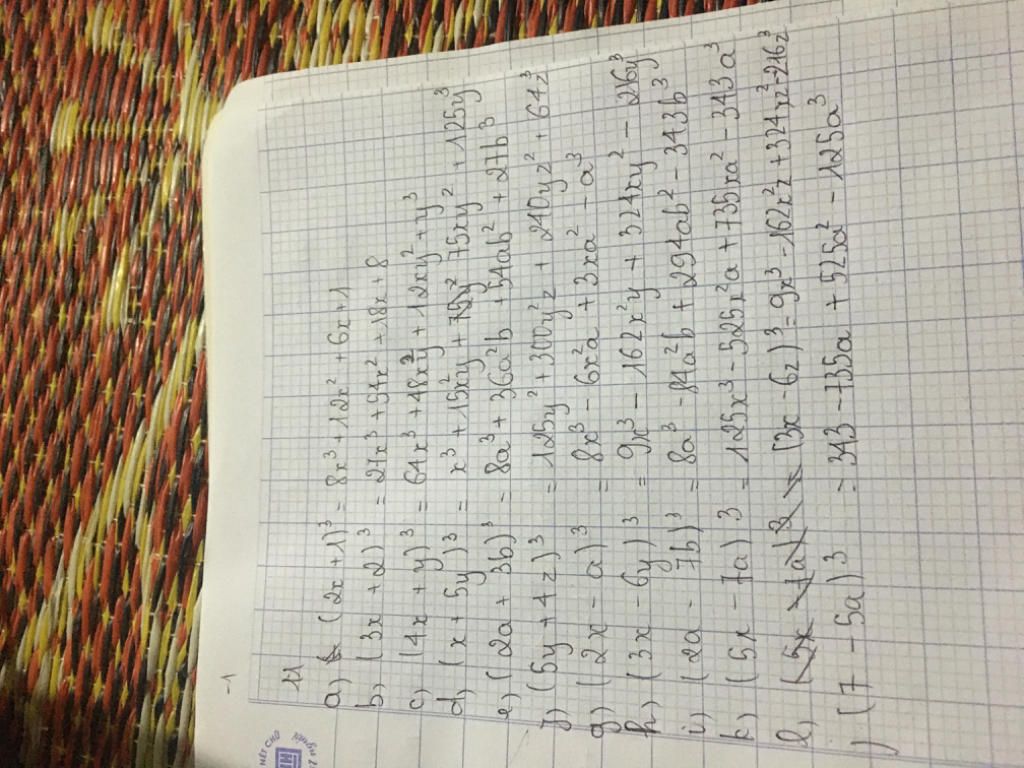 -1
11
a) (2x + 1)³ = 8x³ + 12x² + 6x + 1
b) (3x + 2)³ = 27x³ + 54x² + 18x + 8
c) (4x + y)³ = 64x³ + 48x²y + 12xy² + y³
d) (x + 5y)³ = x³ + 15x²y + 75xy² + 125y³
e) (2a + 3b)³ = 8a³ + 36a²b + 54ab² + 27b³
f) (5y + 4z)³ = 125y² + 300y²z + 240yz² + 64z³
g) (2x - a)³ = 8x³ - 6x²a + 3xa² - a³
h) (3x - 6y)³ = 9x³ - 162x²y + 324xy² - 216y³
i) (2a - 7b)³ = 8a³ - 84a²b + 294ab² - 343b³
k) (5x - 7a)³ = 125x³ - 525x²a + 735xa² - 343a³
l) (5x - 7a)³ = (3x - 6z)³ = 9x³ - 162x²z + 324xz² - 216z³
) (7 - 5a)³ = 343 - 735a + 525a² - 125a³